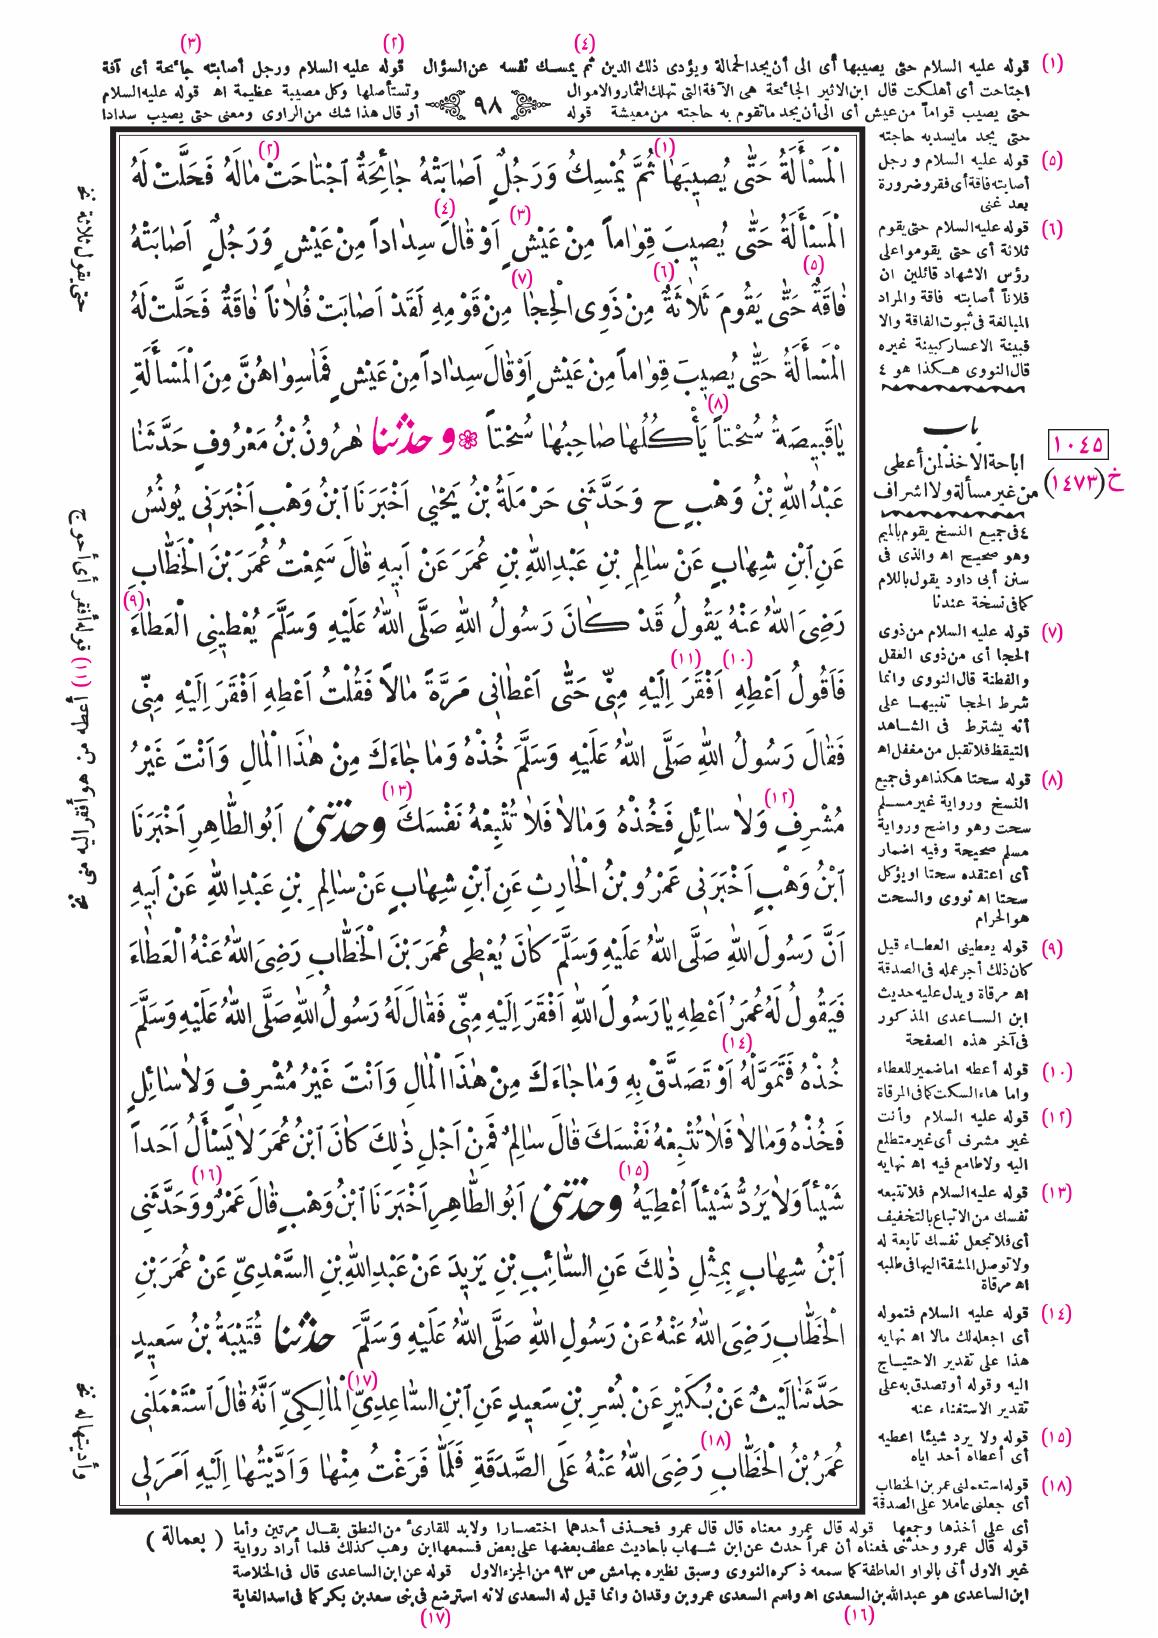 (٣) (٢) (٤)
(١) قوله عليه السلام حتى يصيبها أى الى أن يجد الحمالة ويؤدى ذلك الدين ثم يمسك نفسه عن السؤال قوله عليه السلام ورجل أصابته جائحة أى آفة
اجتاحت أى أهلكت قال ابن الاثير الجائحة هى الآفة التى تهلك الثمار والاموال وتستأصلها وكل مصيبة عظيمة اه قوله عليه السلام
حتى يصيب قواماً من عيش أى الى أن يجد ما تقوم به حاجته من معيشة قوله أو قال هذا شك من الراوى ومعنى حتى يصيب سدادا
٩٨
حتى يجد ما يسد به حاجته
(٥) قوله عليه السلام و رجل
أصابته فاقة أى فقر وضرورة
بعد غنى
(٦) قوله عليه السلام حتى يقوم
ثلاثة أى حتى يقوموا على
رؤس الاشهاد قائلين ان
فلاناً أصابته فاقة والمراد
المبالغة فى ثبوت الفاقة والا
فبينة الاعسار كبينة غيره
قال النووى هكذا هو ٤
باب
اباحة الاخذ لمن أعطى
من غير مسألة ولا اشراف
١٠٤٥
خ (١٤٧٣)
٤ فى جميع النسخ يقوم بالميم
وهو صحيح اه والذى فى
سنن أبى داود يقول باللام
كما فى نسخة عندنا
(٧) قوله عليه السلام من ذوى
الحجا أى من ذوى العقل
والفطنة قال النووى وانما
شرط الحجا تنبيها على
أنه يشترط فى الشاهد
التيقظ فلا تقبل من مغفل اه
(٨) قوله سحتا هكذا هو فى جميع
النسخ ورواية غير مسلم
سحت وهو واضح ورواية
مسلم صحيحة وفيه اضمار
أى اعتقده سحتا او يؤكل
سحتا اه نووى والسحت
هو الحرام
(٩) قوله يعطينى العطاء قيل
كان ذلك أجر عمله فى الصدقة
اه مرقاة ويدل عليه حديث
ابن الساعدى المذكور
فى آخر هذه الصفحة
(١٠) قوله أعطه اما ضمير للعطاء
واما هاء السكت كما فى المرقاة
(١٢) قوله عليه السلام وأنت
غير مشرف أى غير متطلع
اليه ولا طامع فيه اه نهايه
(١٣) قوله عليه السلام فلا تتبعه
نفسك من الاتباع بالتخفيف
أى فلا تجعل نفسك تابعة له
ولا توصل المشقة اليها فى طلبه
اه مرقاة
(١٤) قوله عليه السلام فتموله
أى اجعله لك مالا اه نهايه
هذا على تقدير الاحتياج
اليه وقوله أو تصدق به على
تقدير الاستغناء عنه
(١٥) قوله ولا يرد شيئا اعطيه
أى أعطاه أحد اياه
(١٨) قوله استعملنى عمر بن الخطاب
أى جعلنى عاملا على الصدقة
اَلْمَسْأَلَةُ حَتَّى يُصِيبَهَا (١) ثُمَّ يُمْسِكُ وَرَجُلٌ اَصَابَتْهُ جَائِحَةٌ اجْتَاحَتْ (٢) مَالَهُ فَحَلَّتْ لَهُ
الْمَسْأَلَةُ حَتَّى يُصِيبَ قِوَاماً مِنْ عَيْشٍ (٣) اَوْ قَالَ سِدَاداً (٤) مِنْ عَيْشٍ وَرَجُلٌ اَصَابَتْهُ
فَاقَةٌ (٥) حَتَّى يَقُومَ ثَلَاثَةٌ (٦) مِنْ ذَوِى الْحِجَا (٧) مِنْ قَوْمِهِ لَقَدْ اَصَابَتْ فُلَاناً فَاقَةٌ فَحَلَّتْ لَهُ
الْمَسْأَلَةُ حَتَّى يُصِيبَ قِوَاماً مِنْ عَيْشٍ اَوْ قَالَ سِدَاداً مِنْ عَيْشٍ فَمَا سِوَاهُنَّ مِنَ الْمَسْأَلَةِ
يَا قَبِيصَةُ سُحْتاً (٨) يَأْكُلُهَا صَاحِبُهَا سُحْتاً ❁ وحدثنا هٰرُونُ بْنُ مَعْرُوفٍ حَدَّثَنَا
عَبْدُ اللهِ بْنُ وَهْبٍ ح وَحَدَّثَنِى حَرْمَلَةُ بْنُ يَحْيٰى اَخْبَرَنَا ابْنُ وَهْبٍ اَخْبَرَنِى يُونُسُ
عَنِ ابْنِ شِهَابٍ عَنْ سَالِمِ بْنِ عَبْدِ اللهِ بْنِ عُمَرَ عَنْ اَبِيهِ قَالَ سَمِعْتُ عُمَرَ بْنَ الْخَطَّابِ
رَضِىَ اللهُ عَنْهُ يَقُولُ قَدْ كَانَ رَسُولُ اللهِ صَلَّى اللهُ عَلَيْهِ وَسَلَّمَ يُعْطِينِى الْعَطَاءَ (٩)
فَاَقُولُ اَعْطِهِ (١٠) اَفْقَرَ (١١) اِلَيْهِ مِنِّى حَتَّى اَعْطَانِى مَرَّةً مَالاً فَقُلْتُ اَعْطِهِ اَفْقَرَ اِلَيْهِ مِنِّى
فَقَالَ رَسُولُ اللهِ صَلَّى اللهُ عَلَيْهِ وَسَلَّمَ خُذْهُ وَمَا جَاءَكَ مِنْ هٰذَا الْمَالِ وَاَنْتَ غَيْرُ
مُشْرِفٍ (١٢) وَلَا سَائِلٍ فَخُذْهُ وَمَالَا فَلَا تُتْبِعْهُ نَفْسَكَ (١٣) وحدثنى اَبُو الطَّاهِرِ اَخْبَرَنَا
ابْنُ وَهْبٍ اَخْبَرَنِى عَمْرُو بْنُ الْحَارِثِ عَنِ ابْنِ شِهَابٍ عَنْ سَالِمِ بْنِ عَبْدِ اللهِ عَنْ اَبِيهِ
اَنَّ رَسُولَ اللهِ صَلَّى اللهُ عَلَيْهِ وَسَلَّمَ كَانَ يُعْطِى عُمَرَ بْنَ الْخَطَّابِ رَضِىَ اللهُ عَنْهُ الْعَطَاءَ
فَيَقُولُ لَهُ عُمَرُ اَعْطِهِ يَا رَسُولَ اللهِ اَفْقَرَ اِلَيْهِ مِنِّى فَقَالَ لَهُ رَسُولُ اللهِ صَلَّى اللهُ عَلَيْهِ وَسَلَّمَ
خُذْهُ فَتَمَوَّلْهُ (١٤) اَوْ تَصَدَّقْ بِهِ وَمَا جَاءَكَ مِنْ هٰذَا الْمَالِ وَاَنْتَ غَيْرُ مُشْرِفٍ وَلَا سَائِلٍ
فَخُذْهُ وَمَالَا فَلَا تُتْبِعْهُ نَفْسَكَ قَالَ سَالِمٌ فَمِنْ اَجْلِ ذٰلِكَ كَانَ ابْنُ عُمَرَ لَا يَسْأَلُ اَحَداً
شَيْئاً وَلَا يَرُدُّ شَيْئاً اُعْطِيَهُ (١٥) وحدثنى اَبُو الطَّاهِرِ اَخْبَرَنَا ابْنُ وَهْبٍ قَالَ عَمْرٌو (١٦) وَحَدَّثَنِى
ابْنُ شِهَابٍ بِمِثْلِ ذٰلِكَ عَنِ السَّائِبِ بْنِ يَزِيدَ عَنْ عَبْدِ اللهِ بْنِ السَّعْدِىِّ عَنْ عُمَرَ بْنِ
الْخَطَّابِ رَضِىَ اللهُ عَنْهُ عَنْ رَسُولِ اللهِ صَلَّى اللهُ عَلَيْهِ وَسَلَّمَ حدثنا قُتَيْبَةُ بْنُ سَعِيدٍ
حَدَّثَنَا لَيْثٌ عَنْ بُكَيْرٍ عَنْ بُسْرِ بْنِ سَعِيدٍ عَنِ ابْنِ السَّاعِدِىِّ (١٧) الْمَالِكِىِّ اَنَّهُ قَالَ اسْتَعْمَلَنِى
عُمَرُ بْنُ الْخَطَّابِ (١٨) رَضِىَ اللهُ عَنْهُ عَلَى الصَّدَقَةِ فَلَمَّا فَرَغْتُ مِنْهَا وَاَدَّيْتُهَا اِلَيْهِ اَمَرَ لِى
حتى يقول ثلاثة نخ
قوله أفقر أى أحوج (١١) أعطه من هو أفقر اليه منى نخ
وأديتها له نخ
أى على أخذها وجمعها قوله قال عمرو معناه قال قال عمرو فحذف أحدهما اختصارا ولابد للقارئ من النطق بقال مرتين وأما
قوله قال عمرو وحدثنى فمعناه أن عمراً حدث عن ابن شهاب باحاديث عطف بعضها على بعض فسمعها ابن وهب كذلك فلما أراد رواية
غير الاول أتى بالواو العاطفة كما سمعه ذكره النووى وسبق نظيره بهامش ص ٩٣ من الجزء الاول قوله عن ابن الساعدى قال فى الخلاصة
ابن الساعدى هو عبد الله بن السعدى اه واسم السعدى عمرو بن وقدان وانما قيل له السعدى لانه استرضع فى بنى سعد بن بكر كما فى اسد الغابة
( بعمالة )
(١٧) (١٦)